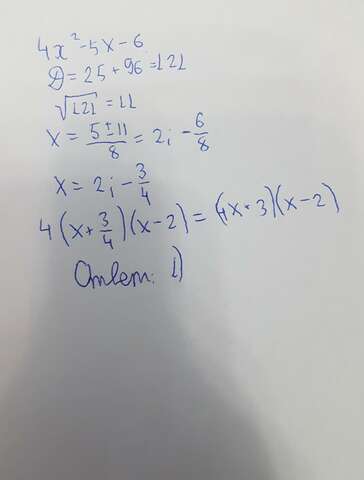 4x²-5x-6
D=25+96=121
√121=11
x=5±11/8=2; -6/8
x=2; -3/4
4(x+3/4)(x-2)=(4x+3)(x-2)
Ответ: 1)